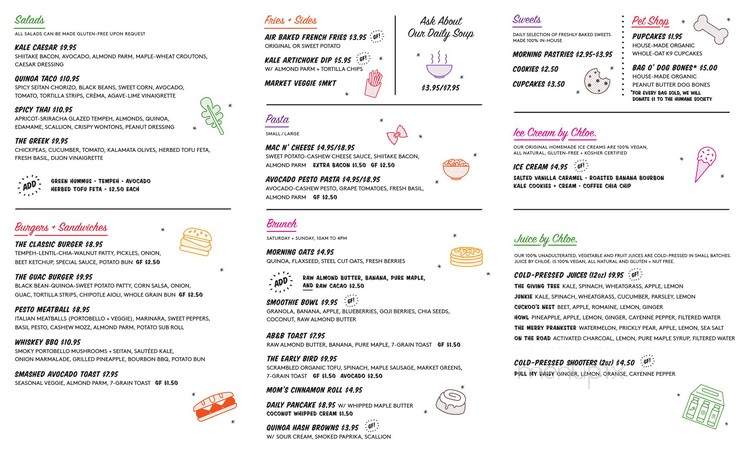 Salads
ALL SALADS CAN BE MADE GLUTEN-FREE UPON REQUEST
KALE CAESAR $9.95
SHIITAKE BACON, AVOCADO, ALMOND PARM, MAPLE-WHEAT CROUTONS,
CAESAR DRESSING
QUINOA TACO $10.95
SPICY SEITAN CHORIZO, BLACK BEANS, SWEET CORN, AVOCADO,
TOMATO, TORTILLA STRIPS, CRÈMA, AGAVE-LIME VINAIGRETTE
SPICY THAI $10.95
APRICOT-SRIRACHA GLAZED TEMPEH, ALMONDS, QUINOA,
EDAMAME, SCALLION, CRISPY WONTONS, PEANUT DRESSING
THE GREEK $9.95
CHICKPEAS, CUCUMBER, TOMATO, KALAMATA OLIVES, HERBED TOFU FETA,
FRESH BASIL, DIJON VINAIGRETTE
ADD
GREEN HUMMUS - TEMPEH - AVOCADO
HERBED TOFU FETA - $2.50 EACH
Burgers + Sandwiches
THE CLASSIC BURGER $8.95
TEMPEH-LENTIL-CHIA-WALNUT PATTY, PICKLES, ONION,
BEET KETCHUP, SPECIAL SAUCE, POTATO BUN GF $2.50
THE GUAC BURGER $9.95
BLACK BEAN-QUINOA-SWEET POTATO PATTY, CORN SALSA, ONION,
GUAC, TORTILLA STRIPS, CHIPOTLE AIOLI, WHOLE GRAIN BUN GF $2.50
PESTO MEATBALL $8.95
ITALIAN MEATBALLS (PORTOBELLO + VEGGIE), MARINARA, SWEET PEPPERS,
BASIL, PESTO, CASHEW MOZZ, ALMOND PARM, POTATO SUB ROLL
WHISKEY BBQ $10.95
SMOKY PORTOBELLO MUSHROOMS + SEITAN, SAUTÉED KALE,
ONION MARMALADE, GRILLED PINEAPPLE, BOURBON BBQ, POTATO BUN
SMASHED AVOCADO TOAST $7.95
SEASONAL VEGGIE, ALMOND PARM, 7-GRAIN TOAST GF $1.50
Fries + Sides
AIR BAKED FRENCH FRIES $3.95 GF!
ORIGINAL OR SWEET POTATO
KALE ARTICHOKE DIP $5.95 GF!
W/ ALMOND PARM + TORTILLA CHIPS
MARKET VEGGIE $MKT
Ask About
Our Daily Soup
$3.95/$7.95
Pasta
SMALL / LARGE
MAC N' CHEESE $4.95/$8.95
SWEET POTATO-CASHEW CHEESE SAUCE, SHIITAKE BACON,
ALMOND PARM EXTRA BACON $1.50 GF $2.50
AVOCADO PESTO PASTA $4.95/$8.95
AVOCADO-CASHEW PESTO, GRAPE TOMATOES, FRESH BASIL,
ALMOND PARM GF $2.50
Brunch
SATURDAY + SUNDAY, 10AM TO 4PM
MORNING OATS $4.95
QUINOA, FLAXSEED, STEEL CUT OATS, FRESH BERRIES
ADD
RAW ALMOND BUTTER, BANANA, PURE MAPLE,
AND RAW CACAO $2.50
SMOOTHIE BOWL $9.95 GF!
GRANOLA, BANANA, APPLE, BLUEBERRIES, GOJI BERRIES, CHIA SEEDS,
COCONUT, RAW ALMOND BUTTER
AB&B TOAST $7.95
RAW ALMOND BUTTER, BANANA, PURE MAPLE, 7-GRAIN TOAST GF $1.50
THE EARLY BIRD $9.95
SCRAMBLED ORGANIC TOFU, SPINACH, MAPLE SAUSAGE, MARKET GREENS,
7-GRAIN TOAST GF $1.50 AVOCADO $2.50
MOM'S CINNAMON ROLL $4.95
DAILY PANCAKE $8.95 W/ WHIPPED MAPLE BUTTER
COCONUT WHIPPED CREAM $1.50
QUINOA HASH BROWNS $3.95 GF!
W/ SOUR CREAM, SMOKED PAPRIKA, SCALLION
Sweets
DAILY SELECTION OF FRESHLY BAKED SWEETS
MADE 100% IN-HOUSE
MORNING PASTRIES $2.95-$3.95
COOKIES $2.50
CUPCAKES $3.50
Pet Shop
PUPCAKES $1.95
HOUSE-MADE ORGANIC
WHOLE-OAT K9 CUPCAKES
BAG O' DOG BONES* $5.00
HOUSE-MADE ORGANIC
PEANUT BUTTER DOG BONES
*FOR EVERY BAG SOLD, WE WILL
DONATE $1 TO THE HUMANE SOCIETY
Ice Cream by Chloe.
OUR ORIGINAL HOMEMADE ICE CREAMS ARE 100% VEGAN,
ALL NATURAL, GLUTEN-FREE + KOSHER CERTIFIED
ICE CREAM $4.95 GF!
SALTED VANILLA CARAMEL - ROASTED BANANA BOURBON
KALE COOKIES + CREAM - COFFEE CHIA CHIP
Juice by Chloe.
OUR 100% UNADULTERATED, VEGETABLE AND FRUIT JUICES ARE COLD-PRESSED IN SMALL BATCHES.
JUICE BY CHLOE. IS 100% VEGAN, ALL NATURAL AND GLUTEN + NUT FREE.
COLD-PRESSED JUICES (12oz) $9.95 GF!
THE GIVING TREE KALE, SPINACH, WHEATGRASS, APPLE, LEMON
JUNKIE KALE, SPINACH, WHEATGRASS, CUCUMBER, PARSLEY, LEMON
CUCKOO'S NEST BEET, APPLE, ROMAINE, LEMON, GINGER
HOWL PINEAPPLE, APPLE, LEMON, GINGER, CAYENNE PEPPER, FILTERED WATER
THE MERRY PRANKSTER WATERMELON, PRICKLY PEAR, APPLE, LEMON, SEA SALT
ON THE ROAD ACTIVATED CHARCOAL, LEMON, PURE MAPLE SYRUP, FILTERED WATER
COLD-PRESSED SHOOTERS (2oz) $4.50 GF!
PULL MY DAISY GINGER, LEMON, ORANGE, CAYENNE PEPPER